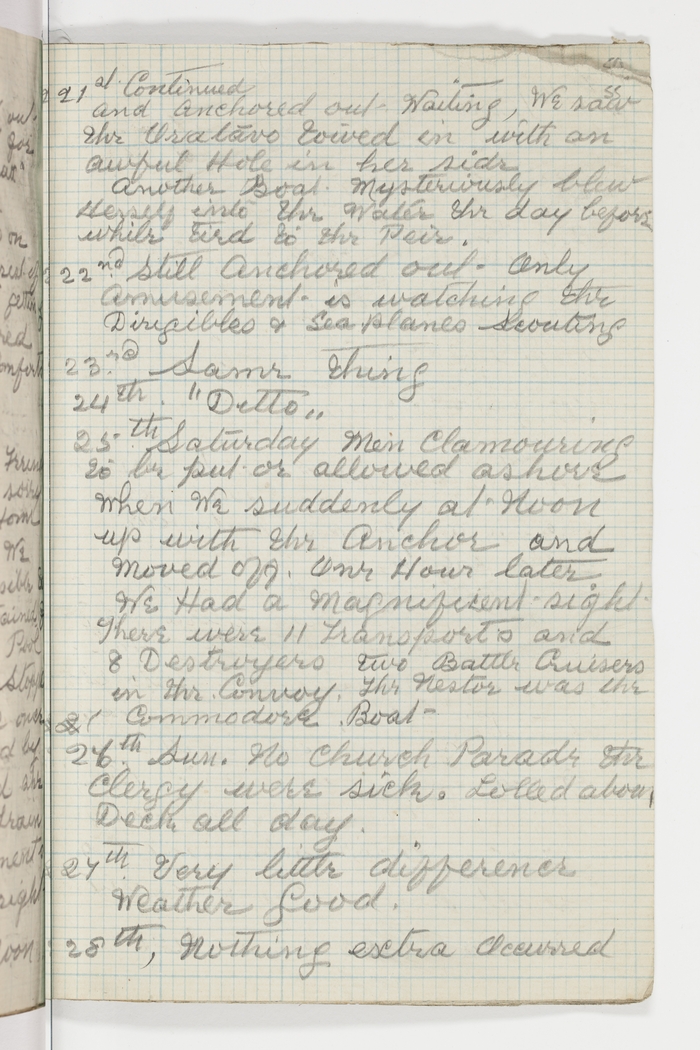 55
21st Continued
and anchored out - Waiting, We saw
the Oratavo towed in with an
awful Hole in her side
Another Boat Mysteriously blew
Herself into the Water the day before
while tied to the Peir.
22nd Still Anchored out - Only
amusement - is watching the
Dirigibles & Sea planes Scouting
23rd Same thing
24th. "Ditto"
25th Saturday Men Clamouring
to be put or allowed ashore
when We suddenly at Noon
up with the Anchor and
moved off. One Hour later
We Had a magnificent sight
There were 11 Transports and
8 Destroyers two Battle Cruisers
in the Convoy. The Nestor was the
Commodore Boat -
26th. Sun. No Church Parade the
Clergy were sick. Lolled about
Deck all day.
27th. Very little difference
Weather Good.
28th, Nothing extra Occurred